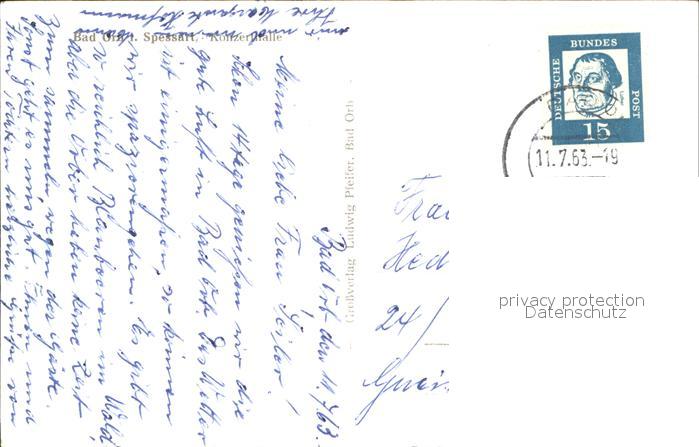 Bad Orb i. Spessart, Konzerthalle
Bad Orb den 11.7.63.
Meine liebe Frau
Schon 14 Tage genießen wir die
gute Luft in Bad Orb. Das Wetter
ist einigermaßen, so können
wir spazierengehen. Es gibt
so reichlich Blaubeeren im Wald
aber die Orber haben keine Zeit
zum sammeln, wegen der Gäste.
Sonst geht es uns gut. Ihnen und
Ihren herzliche Grüße von
Ihre
Großverlag Ludwig Pfeifer, Bad Orb
DEUTSCHE BUNDES POST
Luther
15
11.7.63.–19
Frau
Hed
24/
privacy protection
Datenschutz